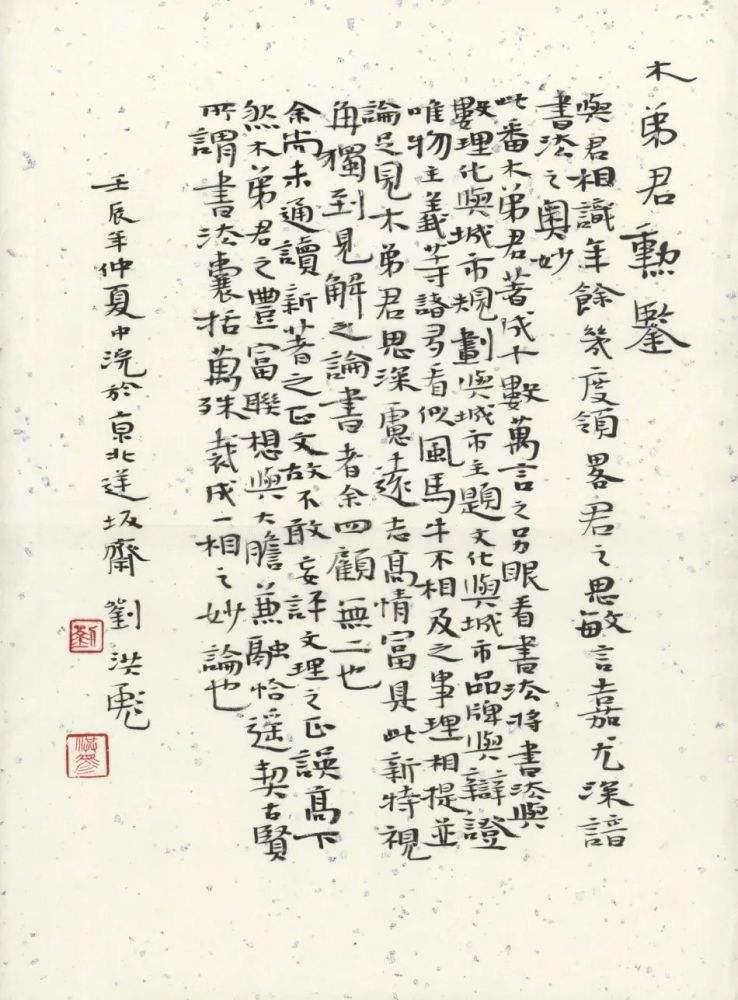 木弟君勳鑒
與君相識年餘幾度領畧君之思敏言嘉尤深諳
書法之奧妙
此番木弟君著成十數萬言之另眼看書法將書法與
數理化與城市規劃與城市主題文化與城市品牌與辯證
唯物主義等諸多看似風馬牛不相及之事理相提並
論足見木弟君思深慮遠志高情富具此新特視
角獨到見解之論書者余四顧無二也
余尚未通讀新著之正文故不敢妄評文理之正誤高下
然木弟君之豐富聯想與大膽兼融恰遥契古賢
所謂書法囊括萬殊裁成一相之妙論也
壬辰年仲夏中浣於京北逆坂齋劉洪彪
劉